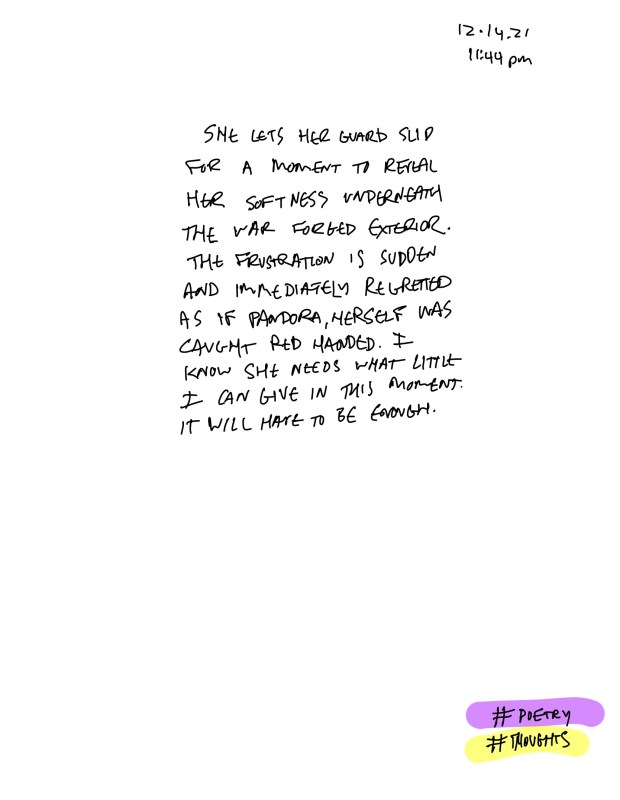 12.14.21
11:44 pm
SHE LETS HER GUARD SLIP
FOR A MOMENT TO REVEAL
HER SOFTNESS UNDERNEATH
THE WAR FORGED EXTERIOR.
THE FRUSTRATION IS SUDDEN
AND IMMEDIATELY REGRETTED
AS IF PANDORA, HERSELF WAS
CAUGHT RED HANDED. I
KNOW SHE NEEDS WHAT LITTLE
I CAN GIVE IN THIS MOMENT.
IT WILL HAVE TO BE ENOUGH.
#POETRY
#THOUGHTS